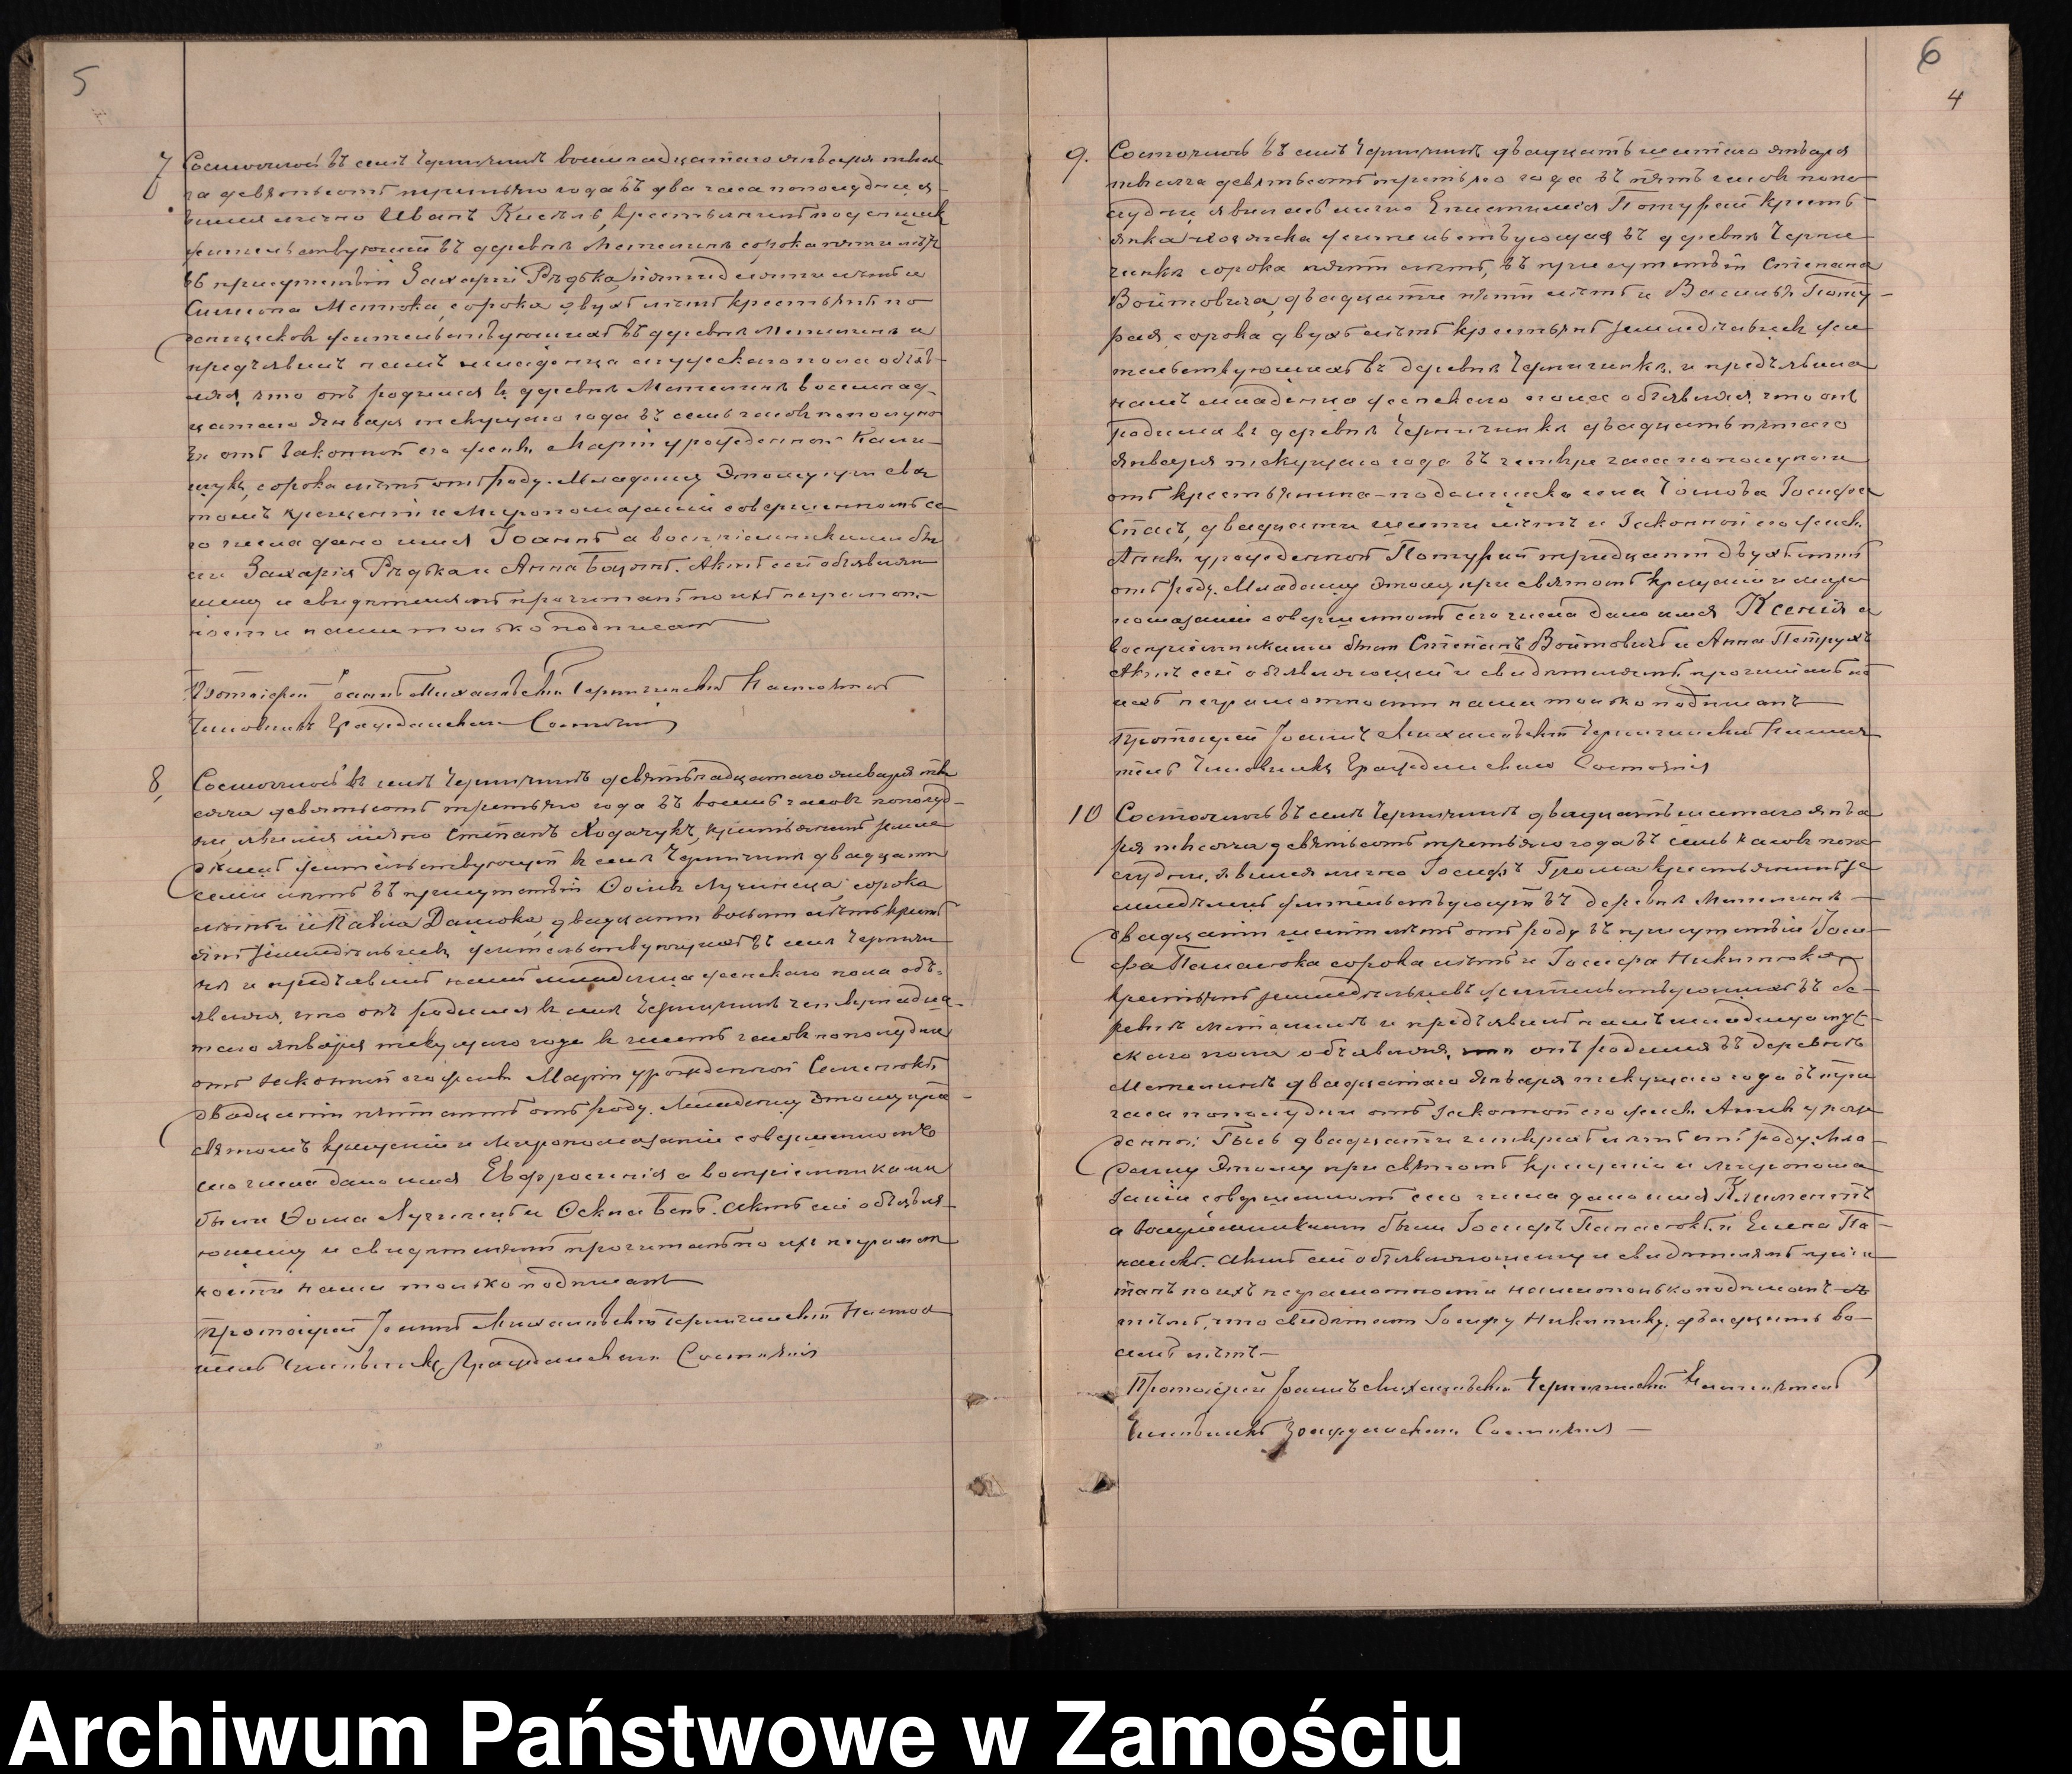 5
7 Состоялось въ селѣ Черничинѣ восемнадцатаго января тыся
ча девятьсотъ третьяго года въ два часа пополудни я
вился лично Иванъ Кисель, крестьянинъ подёнщик
жительствующій въ деревнѣ Метелинѣ сорока пяти лѣтъ
въ присутствіи Захарія Рѣдька, пятидесяти лѣтъ и
Симеона сорока двухъ лѣтъ крестьянъ по
денщиковъ жительствующихъ въ деревнѣ Метелинѣ и
предъявилъ намъ младенца мужескаго пола объяв-
ляя, что онъ родился въ деревнѣ Метелинѣ восемнад-
цатаго января текущаго года въ семь часовъ пополуно
чи отъ законной его жены Маріи урожденной Кали-
щукъ, сорока лѣтъ отъ роду. Младенцу этому при свя
томъ крещеніи и Миропомазаніи совершенномъ се
го числа дано имя Іоаннъ а воспріемниками бы
ли Захарія Рѣдька и Анна Актъ сей объявляю
щему и свидѣтелямъ прочитанъ по ихъ неграмот-
ности нами только подписанъ
Протоіерей Іоаннъ Михаловскій Черничинскій Настоятель
Чиновникъ Гражданскаго Состоянія
8, Состоялось въ селѣ Черничинѣ девятнадцатаго января ты
сяча девятьсотъ третьяго года въ восемь часовъ пополуд-
ни, явился лично Степанъ Ходачукъ, крестьянинъ земле
дѣлецъ жительствующій въ селѣ Черничинѣ двадцати
семи лѣтъ въ присутствіи Ѳомы Лучинца сорока
лѣтъ и Павла Данюка, двадцати восьми лѣтъ крест
янъ земледѣльцевъ жительствующихъ въ селѣ Черничи
нѣ и предъявилъ намъ младенца женскаго пола объ-
являя, что онъ родился въ селѣ Черничинѣ четырнадца-
таго января текущаго года въ шесть часовъ пополудни
отъ законной его жены Маріи урожденной Семенюкъ,
двадцати пяти лѣтъ отъ роду. Младенцу этому при
святомъ крещеніи и Миропомазаніи совершенномъ
сего числа дано имя Евфросинія а воспріемниками
были Ѳома Лучинецъ и Актъ сей объявля-
ющему и свидѣтелямъ прочитанъ по ихъ неграмот
ности нами только подписанъ
Протоіерей Іоаннъ Михаловскій Черничинскій Настоя
тель Чиновникъ Гражданскаго Состоянія
6
4
9. Состоялось въ селѣ Черничинѣ двадцать шестаго января
тысяча девятьсотъ третьяго года въ пять часовъ попо
лудни явилась лично Епистимія Потурай крест
янка жительствующая въ деревнѣ Черни
чинкѣ сорока пяти лѣтъ, въ присутствіи Степана
Войтовича, двадцати пяти лѣтъ и Василья Поту-
рая, сорока двухъ лѣтъ крестьянъ земледѣльцевъ жи
тельствующихъ въ деревнѣ Черничинкѣ, и предъявила
намъ младенца женскаго пола объявляя, что онъ
родился въ деревнѣ Черничинкѣ двадцать пятаго
января текущаго года въ четыре часа пополуночи
отъ крестьянина-поденщика села Іосифа
двадцати шести лѣтъ и Законной его жены
Анны урожденной Потурай тридцати двухъ лѣтъ
отъ роду. Младенцу этому при святомъ крещеніи и миро
помазаніи совершенномъ сего числа дано имя Ксенія а
воспріемниками были Степанъ Войтовичъ и Анна Петрукъ
Актъ сей объявляющей и свидѣтелямъ прочитанъ по
ихъ неграмотности нами только подписанъ
Протоіерей Іоаннъ Михаловскій Черничинскій Настоя
тель Чиновникъ Гражданскаго Состоянія
10 Состоялось въ селѣ Черничинѣ двадцать шестаго янва
ря тысяча девятьсотъ третьяго года въ семь часовъ попо
лудни, явился лично Іосифъ Грома крестьянинъ зе
мледѣлецъ жительствующій въ деревнѣ Метелинѣ
двадцати шести лѣтъ отъ роду въ присутствіи Іоси-
фа Панасюка сорока лѣтъ и Іосифа Никитюка
крестьянъ земледѣльцевъ жительствующихъ въ де-
ревнѣ Метелинѣ и предъявилъ намъ младенца муж-
скаго пола объявляя, что онъ родился въ деревнѣ
Метелинѣ двадцатаго января текущаго года въ три
часа пополудни отъ законной его жены Анны урож
денной двадцати четырехъ лѣтъ отъ роду. Мла-
денцу этому при святомъ крещеніи и миропома
заніи совершенномъ сего числа дано имя Климентъ
а воспріемниками были Іосифъ Панасюкъ и Елена Па-
насюкъ. Актъ сей объявляющему и свидѣтелямъ прочи
танъ по ихъ неграмотности нами только подписанъ
что свидѣтелю Іосифу Никитюку, двадцать во-
семь лѣтъ—
Протоіерей Іоаннъ Михаловскій Черничинскій Настоятель
Чиновникъ Гражданскаго Состоянія —
Archiwum Państwowe w Zamościu